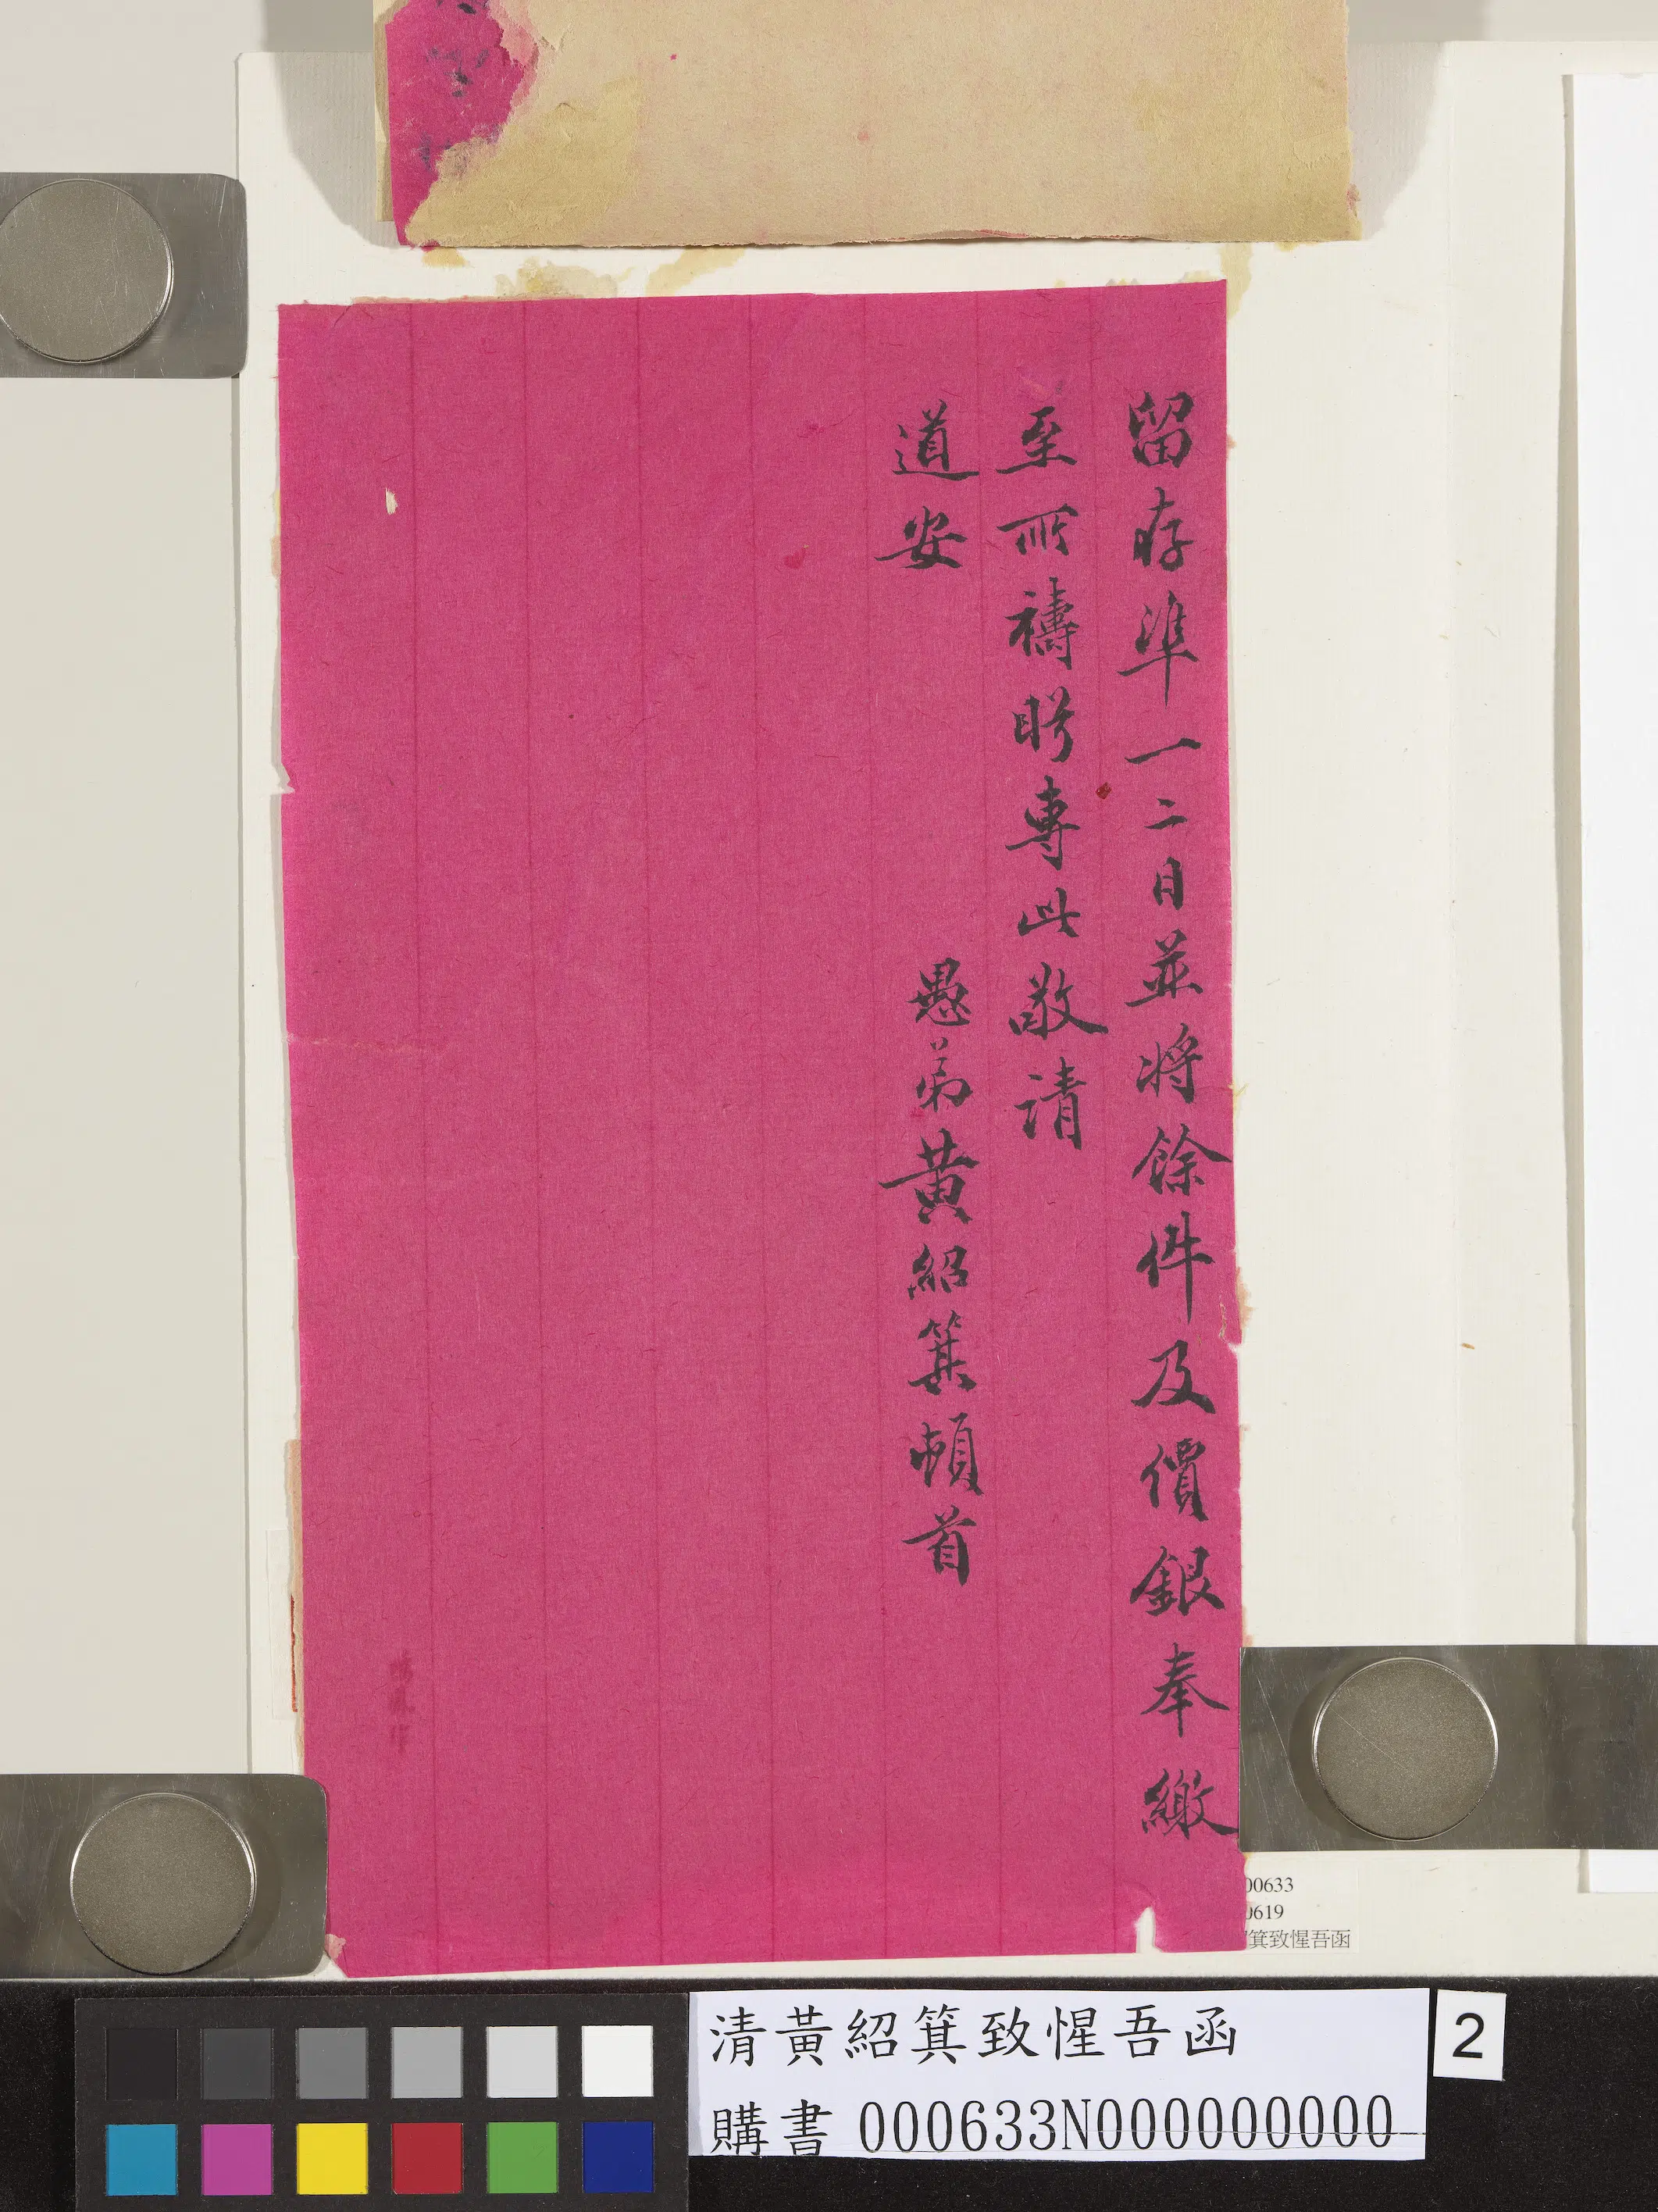 留存準一二日並將餘件及價銀奉繳
至所禱盻專此敬請
道安
愚弟黃紹箕頓首
00633
0619
箕致惺吾函
清黃紹箕致惺吾函
購書 000633N000000000
2